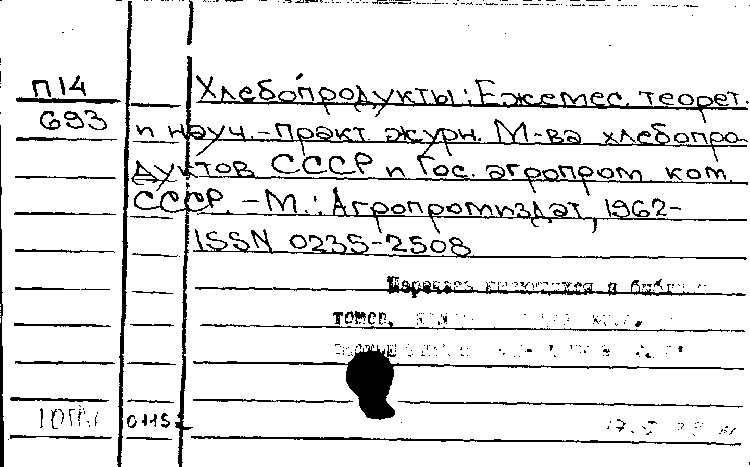 П14
693
Хлебопродукты: Ежемес. теорет.
и науч.-практ. журн. М-ва хлебопро-
дуктов СССР и Гос. агропром. ком.
СССР. - М.: Агропромиздат, 1962-
ISSN 0235-2508
Перечень имеющихся в библио
томов,